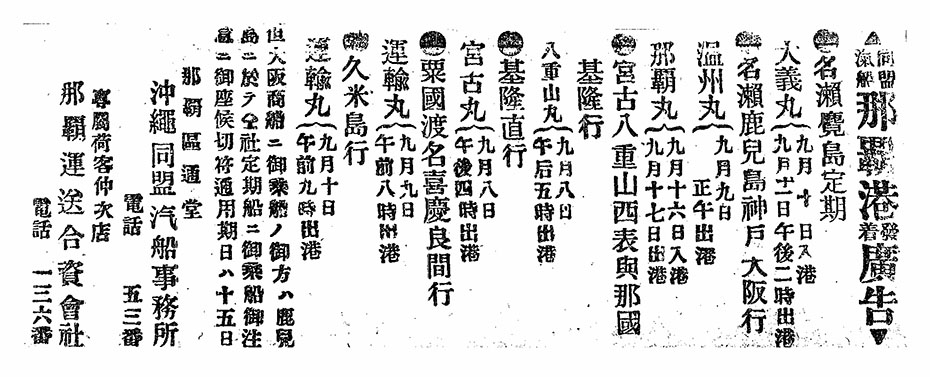 ▲同盟汽船那覇港發着廣告▼
●名瀨麑島定期
大義丸{九月十日入港
九月十一日午後二時出港
●名瀨鹿兒島神戶大阪行
温州丸{九月九日
正午出港
那覇丸{九月十六日入港
九月十七日出港
●宮古八重山西表與那國
基隆行
八重山丸{九月八日
午后五時出港
●基隆直行
宮古丸{九月八日
午後四時出港
●粟國渡名喜慶良間行
運輸丸{九月九日
午前八時出港
●久米島行
運輸丸{九月十日
午前九時出港
但大阪商船ニ御乘船ノ御方ハ鹿兒
島ニ於テ仝社定期船ニ御乘船御注
意ニ御座候切符通用期日ハ十五日
那覇區通堂
沖繩同盟汽船事務所
電話 五三番
專屬荷客仲次店
那覇運送合資會社
電話 一三六番